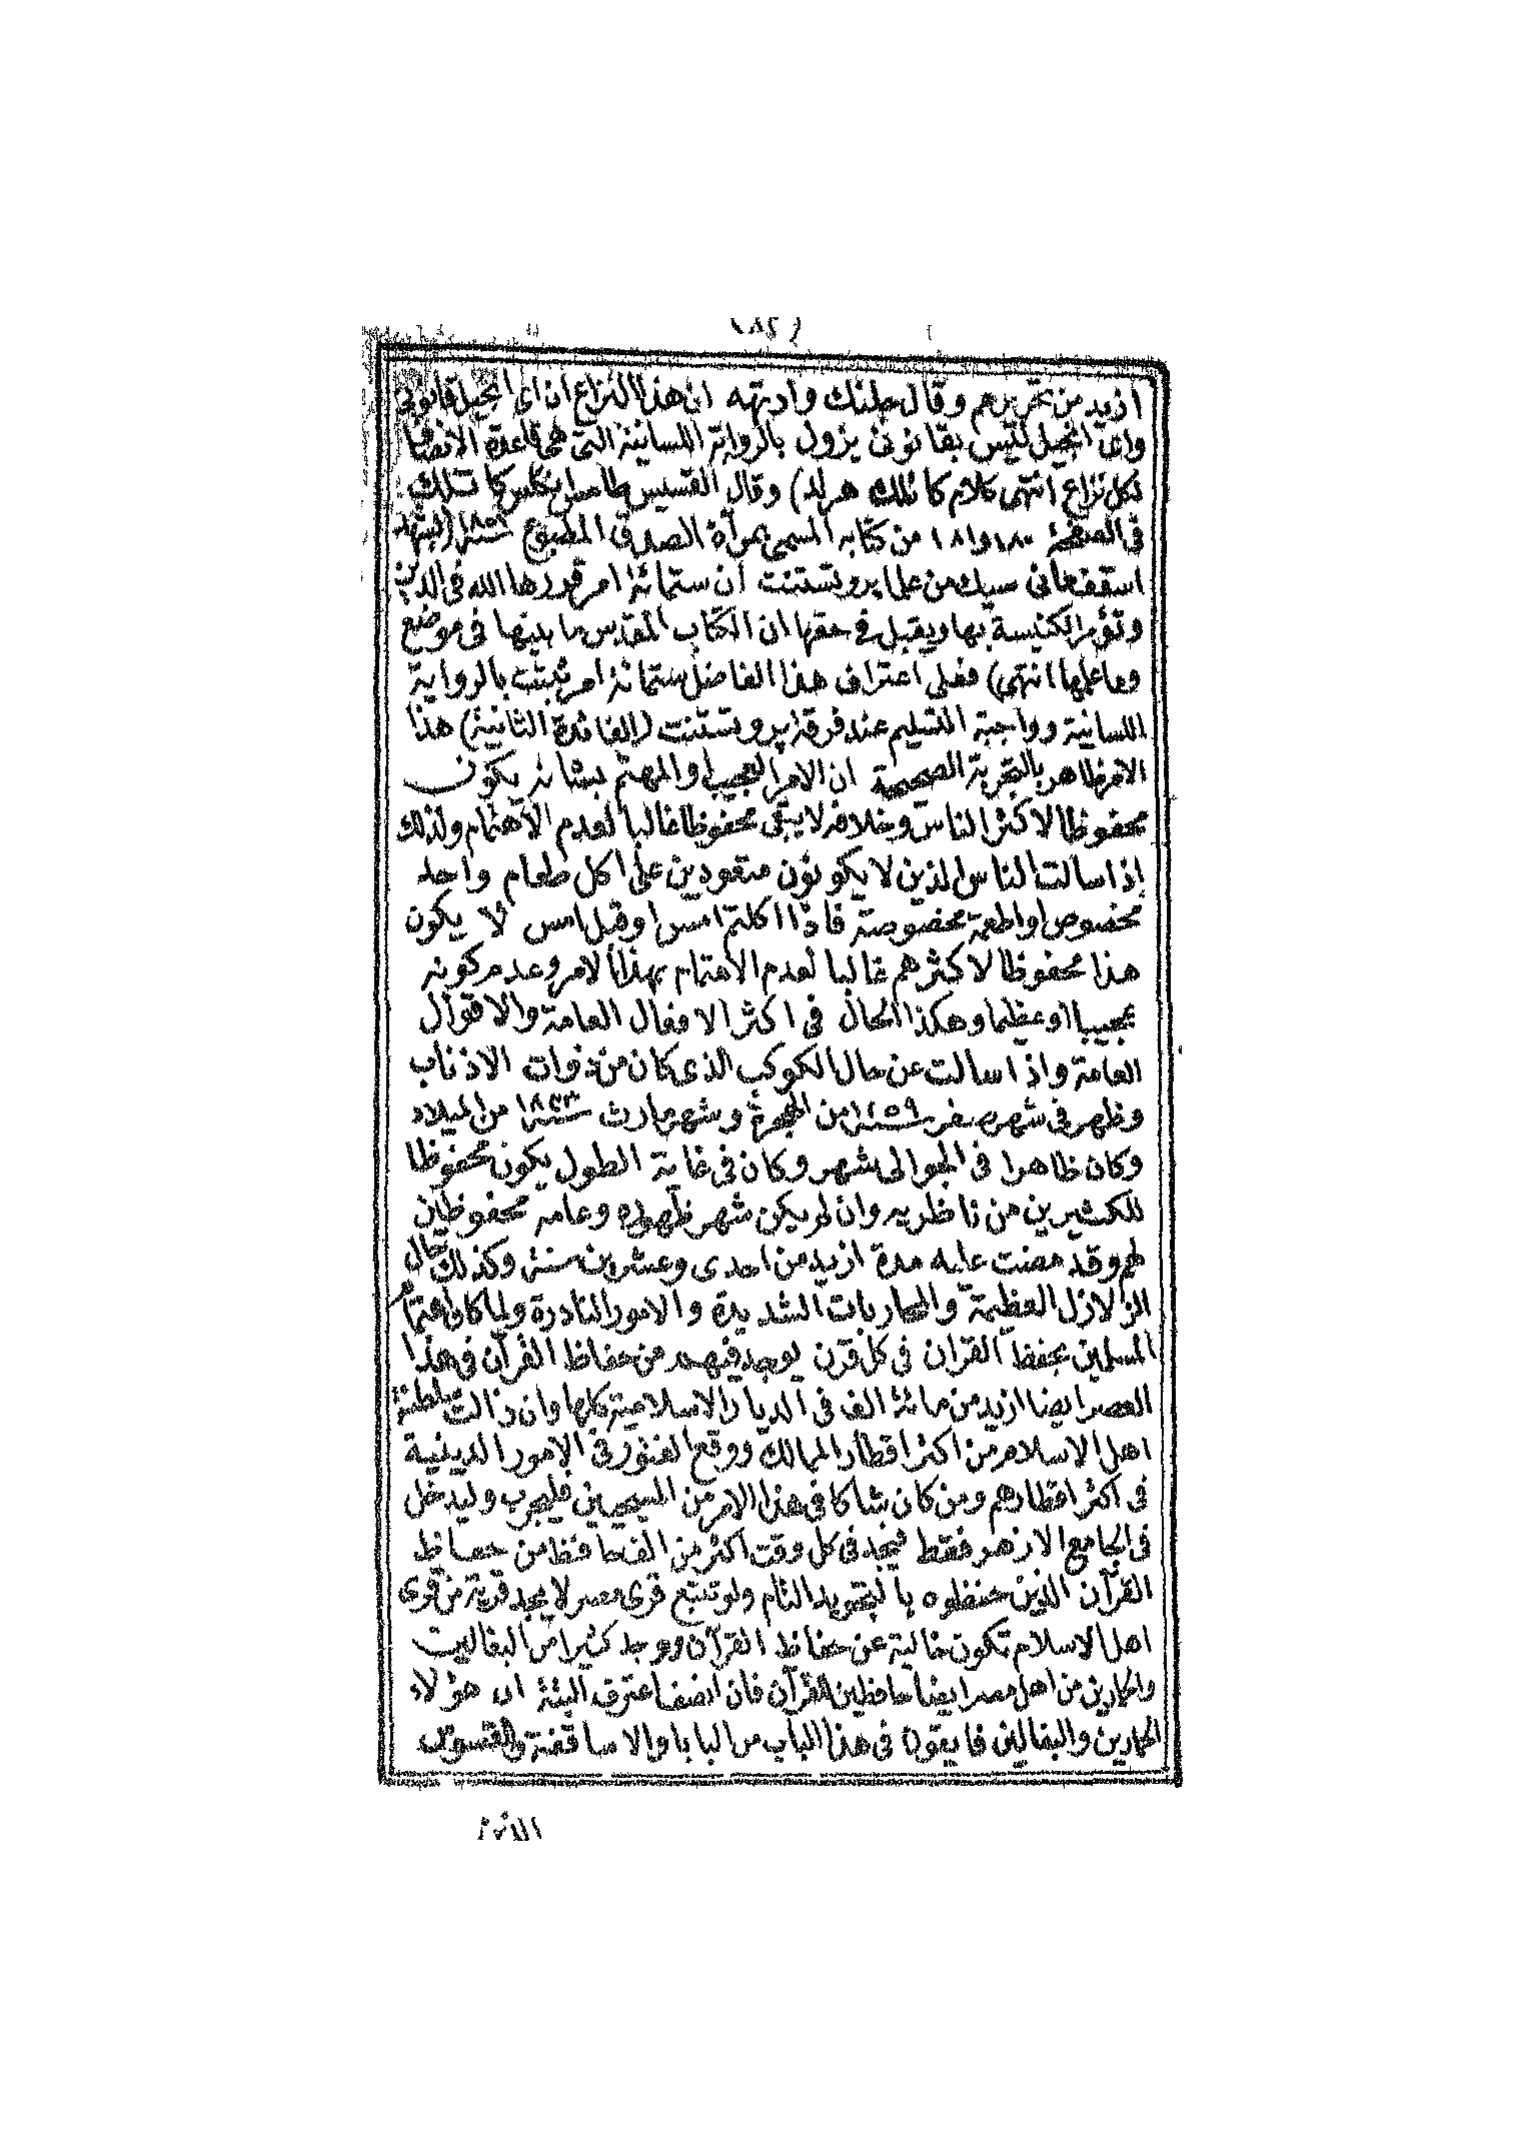 (٨٢)
ازيد من تحريرهم وقال جلنك وادتهه ان هذا النزاع ان اى انجيل قانونى
واى انجيل ليس بقانونى يزول بالرواية اللسانية التى هى قاعدة الانصاف
لكل نزاع انتهى كلام كاتلك هرلد) وقال القسيس طامس انكلس كاتلك
فى الصفحة ١٨٠ و١٨١ من كتابه المسمى بمرآة الصدق المطبوع سنة ١٨٥١ (يشهد
اسقف مانى سيك من علما پروتستنت ان ستمائة امر قررها الله فى الدين
وتؤمر الكنيسة بها ويقبل فى حقها ان الكتاب المقدس ما بينها فى موضع
وما علمها انتهى) فعلى اعتراف هذا الفاضل ستمائة امر ثبتت بالرواية
اللسانية وواجبة التسليم عند فرقة پروتستنت (الفائدة الثانية) هذا
الامر ظاهر بالتجربة الصحيحة ان الامر العجيب او المهتم بشانه يكون
محفوظا لاكثر الناس وخلافه لا يبقى محفوظا غالبا لعدم الاهتمام ولذلك
إذا سالت الناس الذين لا يكونون متعودين على اكل طعام واحد
مخصوص او اطعمة مخصوصة فاذا اكلتم امس او قبل امس لا يكون
هذا محفوظا لاكثرهم غالبا لعدم الاهتمام بهذا الامر وعدم كونه
عجيبا او عظيما وهكذا الحال فى اكثر الافعال العامة والاقوال
العامة واذا سالت عن حال الكوكب الذى كان من ذوات الاذناب
وظهر فى شهر صفر سنة ١٢٥٩ من الهجرة وشهر مارث سنة ١٨٤٣ من الميلاد
وكان ظاهرا فى الجو الى شهر وكان فى غاية الطول يكون محفوظا
للكثيرين من ناظريه وان لم يكن شهر ظهوره وعامه محفوظين
لهم وقد مضت عليه مدة ازيد من احدى وعشرين سنة وكذلك حال
الزلازل العظيمة والمحاربات الشديدة والامور النادرة ولما كان اهتمام
المسلمين بحفظ القرآن فى كل قرن يوجد فيهم من حفاظ القرآن فى هذا
العصر ايضا ازيد من مائة الف فى الديار الاسلامية كلها وان زالت سلطنة
اهل الاسلام من اكثر اقطار الممالك ووقع الفتور فى الامور الدينية
فى اكثر اقطارهم ومن كان شاكا فى هذا الامر من المسيحيين فليجرب وليدخل
فى الجامع الازهر فقط فيجد فى كل وقت اكثر من الف حافظ من حفاظ
القرآن الذين حفظوه بالتجويد التام ولو تتبع قرى مصر لا يجد قرية من قرى
اهل الاسلام تكون خالية عن حفاظ القرآن ووجد كثيرا من البغالين
والحمارين من اهل مصر ايضا حافظين للقرآن فان انصف اعترف البتة ان هؤلاء
الحمارين والبغالين فايقون فى هذا الباب من البابا والاساقفة والقسوس